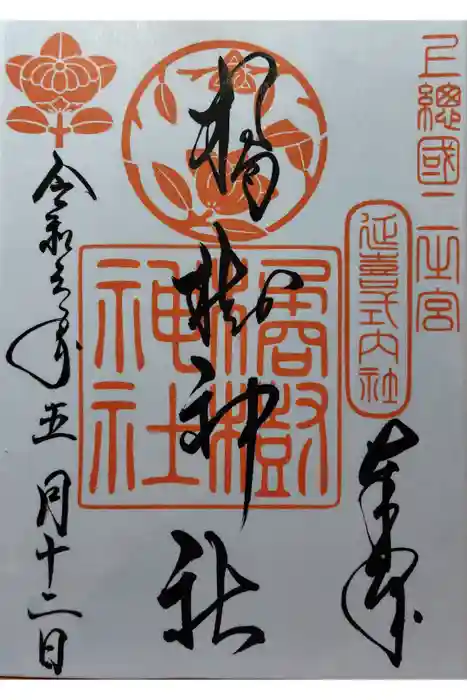 上總國二之宮
延喜式内社
奉拝
橘樹神社
橘樹
神社
令和元年五月十二日